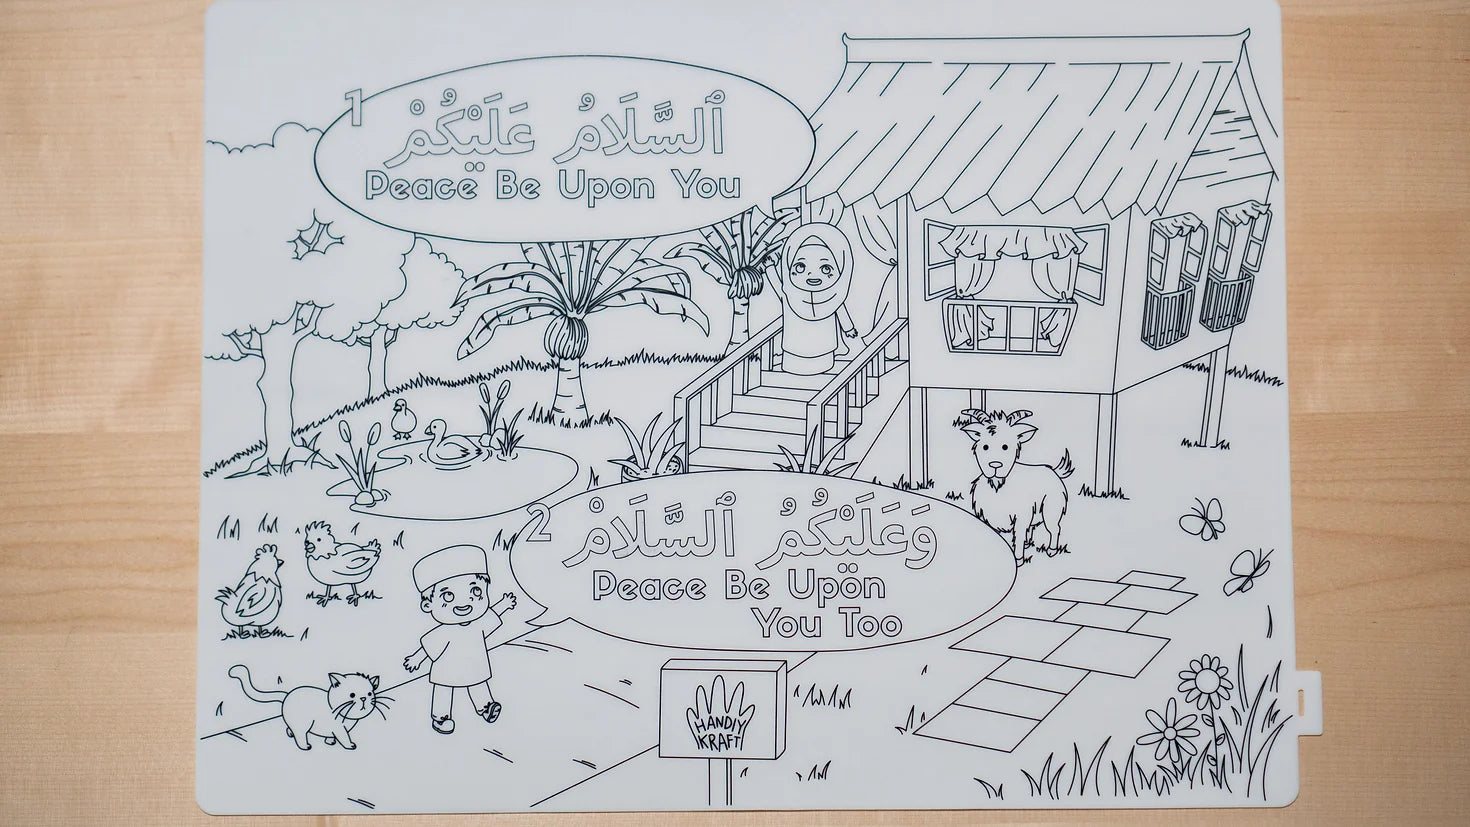 1
ٱلسَّلَامُ عَلَيْكُمْ
Peace Be Upon You
2
وَعَلَيْكُمُ ٱلسَّلَامْ
Peace Be Upon
You Too
HANDIY
KRAFT